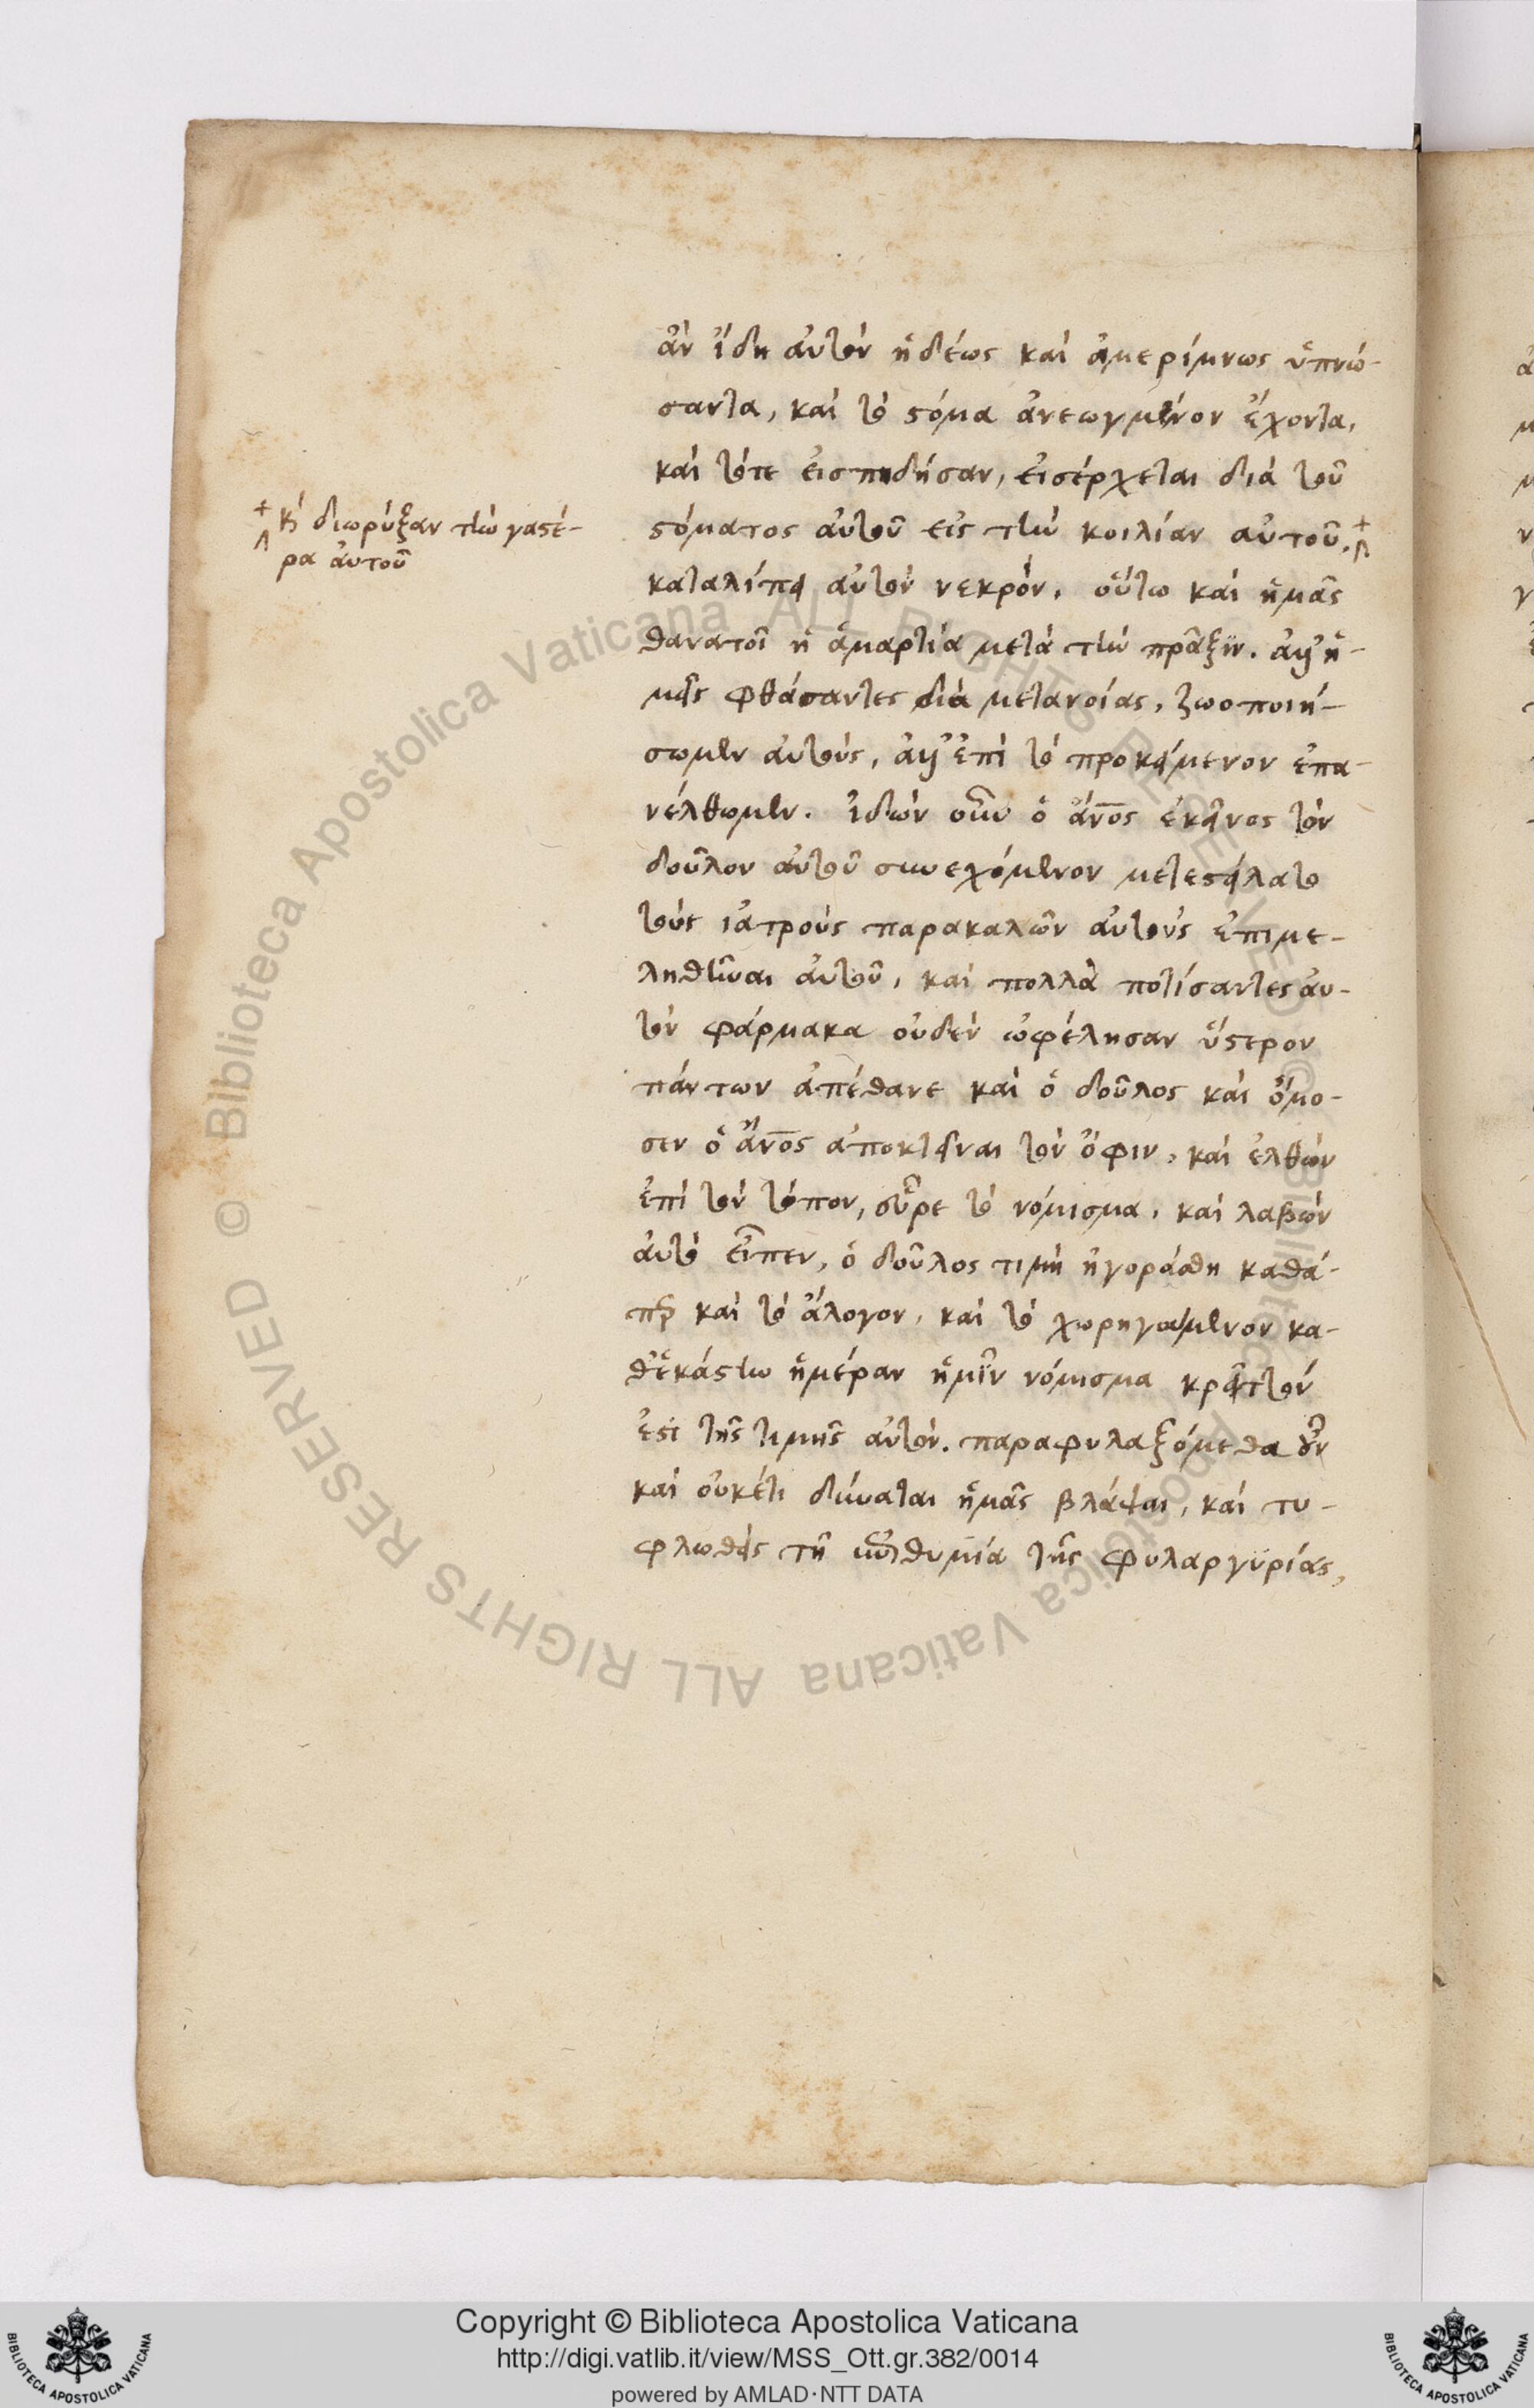 ἂν ἴδη αὐτὸν ἡδέως καὶ ἀμερίμνως ὑπνώ-
σαντα, καὶ τὸ στόμα ἀνεωγμένον ἔχοντα,
καὶ τότε εἰσπηδήσαν, εἰσέρχεται διὰ τοῦ
στόματος αὐτοῦ εἰς τὴν κοιλίαν αὐτοῦ.
καὶ διωρύξαν τὴν γαστέ-
ρα αὐτοῦ
καταλίπει αὐτὸν νεκρόν. οὕτω καὶ ἡμᾶς
θανατοῖ ἡ ἁμαρτία μετὰ τὴν πρᾶξιν. ἀλλ' ἡ-
μεῖς φθάσαντες διὰ μετανοίας, ζωοποιή-
σωμεν αὐτούς, ἀλλ' ἐπὶ τὸ προκείμενον ἐπα-
νέλθωμεν. ἰδὼν οὖν ὁ ἄνος ἐκεῖνος τὸν
δοῦλον αὐτοῦ συνεχόμενον μετεστείλατο
τοὺς ἰατροὺς παρακαλῶν αὐτοὺς ἐπιμε-
ληθῆναι αὐτοῦ, καὶ πολλὰ ποτίσαντες αὐ-
τὸν φάρμακα οὐδὲν ὠφέλησαν ὕστερον
πάντων ἀπέθανε καὶ ὁ δοῦλος καὶ ὄμο-
σεν ὁ ἄνος ἀποκτεῖναι τὸν ὄφιν, καὶ ἐλθὼν
ἐπὶ τὸν τόπον, εὗρε τὸ νόμισμα, καὶ λαβὼν
αὐτὸ εἶπεν, ὁ δοῦλος τιμὴ ἠγοράσθη καθά-
περ καὶ τὸ ἄλογον, καὶ τὸ χορηγούμενον κα-
θ' ἑκάστην ἡμέραν ἡμῖν νόμισμα κρεῖττον
ἐστὶ τῆς τιμῆς αὐτόν. παραφυλαξόμεθα οὖν
καὶ οὐκέτι δύναται ἡμᾶς βλάψαι, καὶ τυ-
φλωθεὶς τῇ ἐπιθυμία τῆς φυλαργυρίας,
Copyright © Biblioteca Apostolica Vaticana
http://digi.vatlib.it/view/MSS_Ott.gr.382/0014
powered by AMLAD·NTT DATA
© Biblioteca Apostolica Vaticana ALL RIGHTS RESERVED
© Biblioteca Apostolica Vaticana ALL RIGHTS RESERVED
BIBLIOTECA APOSTOLICA VATICANA
BIBLIOTECA APOSTOLICA VATICANA